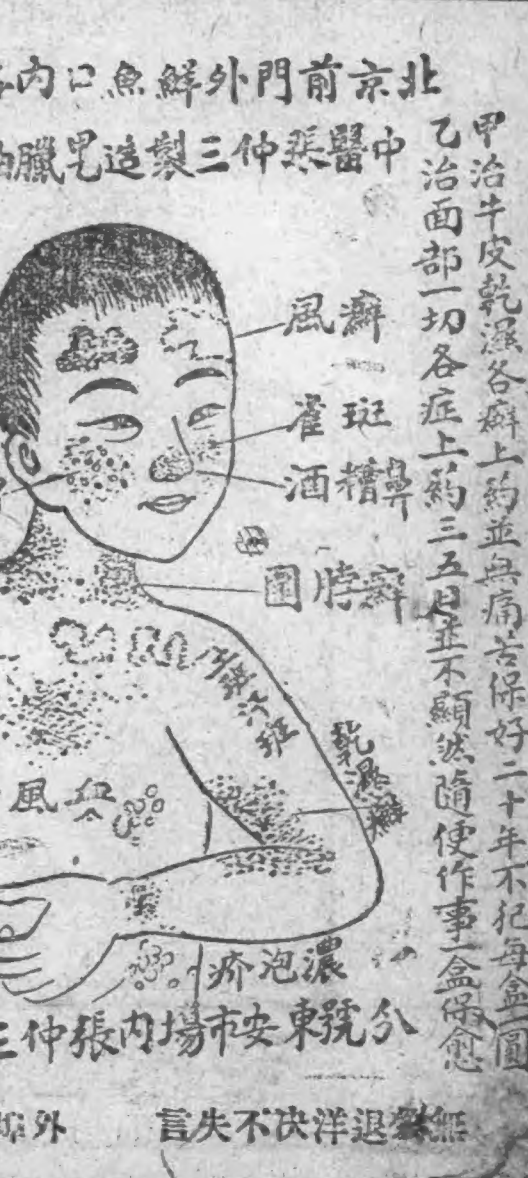 北京前門外鮮魚口內
中醫張仲三製造皂臘油
甲治牛皮乾濕各癬上药並無痛苦保好二十年不犯每盒一圓
乙治面部一切各症上药三五日並不顯然隨便作事一盒保愈
癬風
斑雀
鼻糟酒
癬脖圍
汗斑
乾濕癬
血風
濃泡疥
分號東安市場內張仲三
無效退洋决不失言
外埠